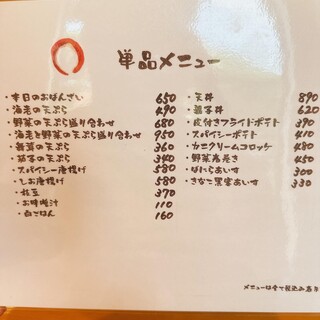 単品メニュー
・本日のおばんざい 650
・海老の天ぷら 490
・野菜の天ぷら盛り合わせ 680
・海老と野菜の天ぷら盛り合わせ 950
・舞茸の天ぷら 360
・茄子の天ぷら 340
・スパイシー唐揚げ 580
・しお唐揚げ 580
・枝豆 370
・お味噌汁 110
・白ごはん 160
・天丼 890
・親子丼 620
・皮付きフライドポテト 390
・スパイシーポテト 410
・カニクリームコロッケ 480
・野菜春巻き 450
・ばにらあいす 300
・きなこ黒蜜あいす 330
メニューは全て税込み